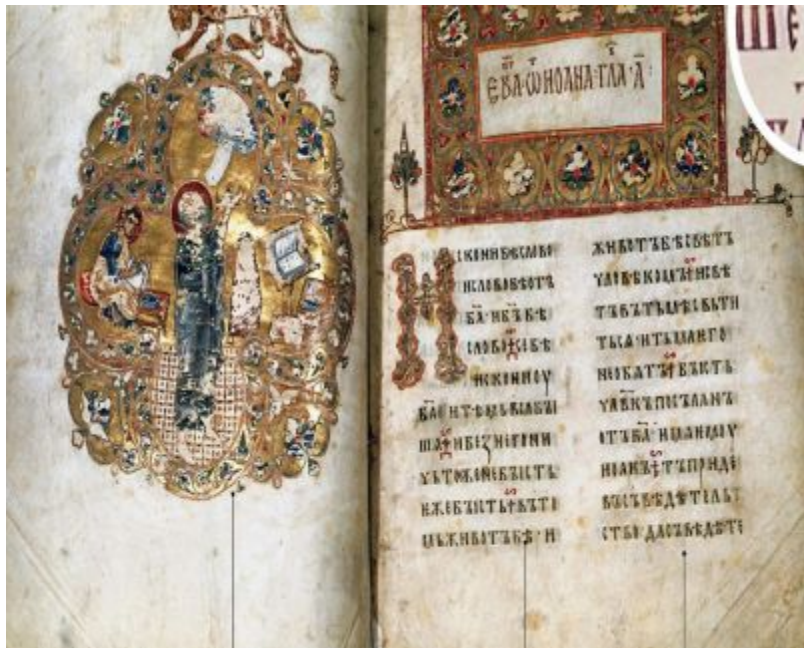 ЕВА·Ѿ ИОАНА·ГЛА·А҃·
ИСКОНИБѢСЛОВО
ИСЛОВОБѢОТЪ
БА҃·ИБЪ҃·БѢ
СЛОВО·СЕБѢ
ИСКОНИОУ
БА҃
ША·ИБЕЗНЕГОНИ
ЧЬТОЖЕНЕБЫСТЬ
ИЖЕБЫСТЬ·ВЪТО
МЬЖИВОТЪБѢ·И
ЖИВОТЪБѢСВѢТЪ
ЧЛОВѢКОМЪ·ИСВѢ
ТЪВЪТЬМѢСВЬТИ
ТЬСѦ·ИТЬМАНГО
НЕОБѦТЪ·БЫСТЬ
ЧЛ҃ВКЪПОСЪЛАНЪ
ОТЪБА҃·ИМѦЮМОУ
ИОАНЪ·ТЪПРИДЕ
ВЪСЪВѢДѢТЕЛЬ
СТВО·ДАСЪВѢДѢТЕ